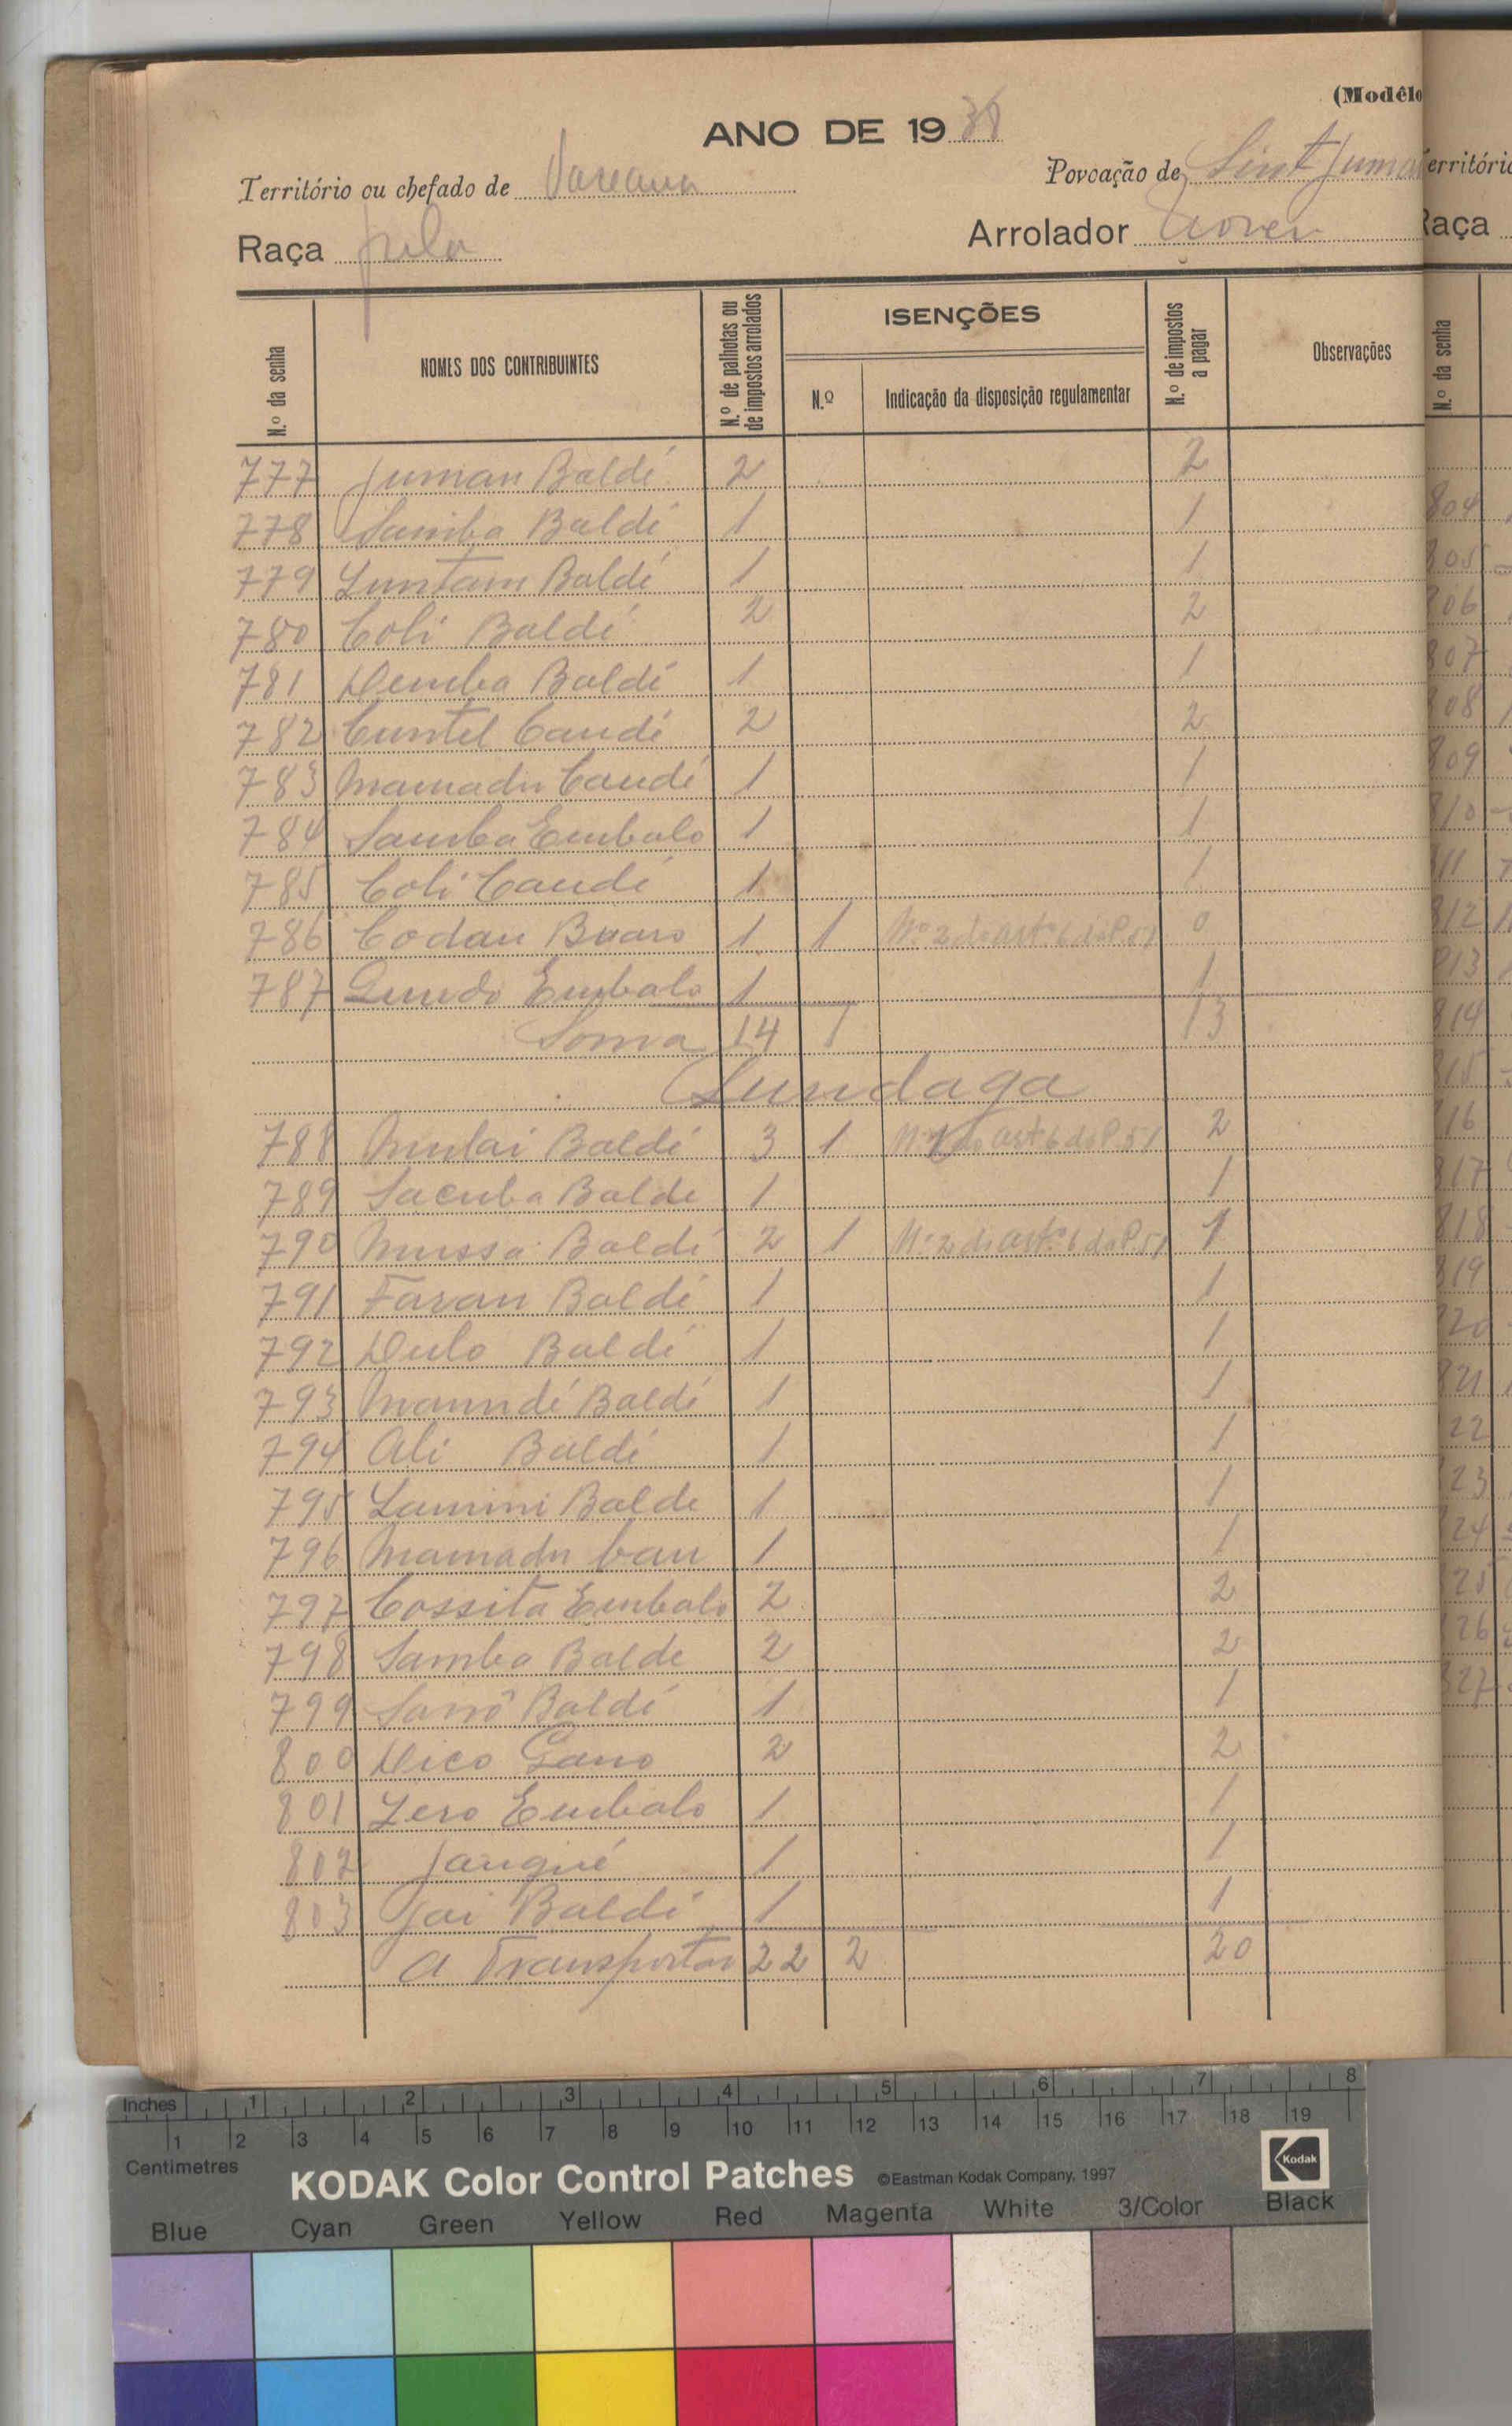 (Modêlo
ANO DE 1938
Território ou chefado de
Povoação de Sint Juma
Raça fula
Arrolador
N.º da senha
NOMES DOS CONTRIBUINTES
N.º de palhotas ou de impostos arrolados
ISENÇÕES
N.º
Indicação da disposição regulamentar
N.º de impostos a pagar
Observações
777 Juman Baldé 2 2
778 Samba Baldé 1 1
779 Luntam Baldé 1 1
780 Coli Baldé 2 2
781 Demba Baldé 1 1
782 Cuntel Candé 2 2
783 Mamadu Candé 1 1
784 Samba Embalo 1 1
785 Coli Candé 1 1
786 Codan Buaro 1 1 N.º 2 do art.º 6 do P. 51 0
787 Embalo 1 1
Soma 14 1 13
Lundaga
788 Mulai Baldé 3 1 N.º do art.º 6 do P. 51 2
789 Sacuba Balde 1 1
790 Mussa Baldé 2 1 N.º 2 do art.º 6 do P. 51 1
791 Faran Baldé 1 1
792 Dulo Baldé 1 1
793 Mamudé Baldé 1 1
794 Ali Baldé 1 1
795 Lamini Balde 1 1
796 Mamadu Cau 1 1
797 Cossita Embalo 2 2
798 Samba Balde 2 2
799 Baldé 1 1
800 Dico Gano 2 2
801 Embalo 1 1
802 Jangué 1 1
803 Jai Baldé 1 1
A Transportar 22 2 20
Território
Raça
N.º da senha
804
805
806
807
808
809
810
811
812
813
814
815
816
817
818
819
820
821
822
823
824
825
826
827
Inches 1 2 3 4 5 6 7 8
1 2 3 4 5 6 7 8 9 10 11 12 13 14 15 16 17 18 19
Centimetres
KODAK Color Control Patches ©Eastman Kodak Company, 1997 Kodak
Blue Cyan Green Yellow Red Magenta White 3/Color Black